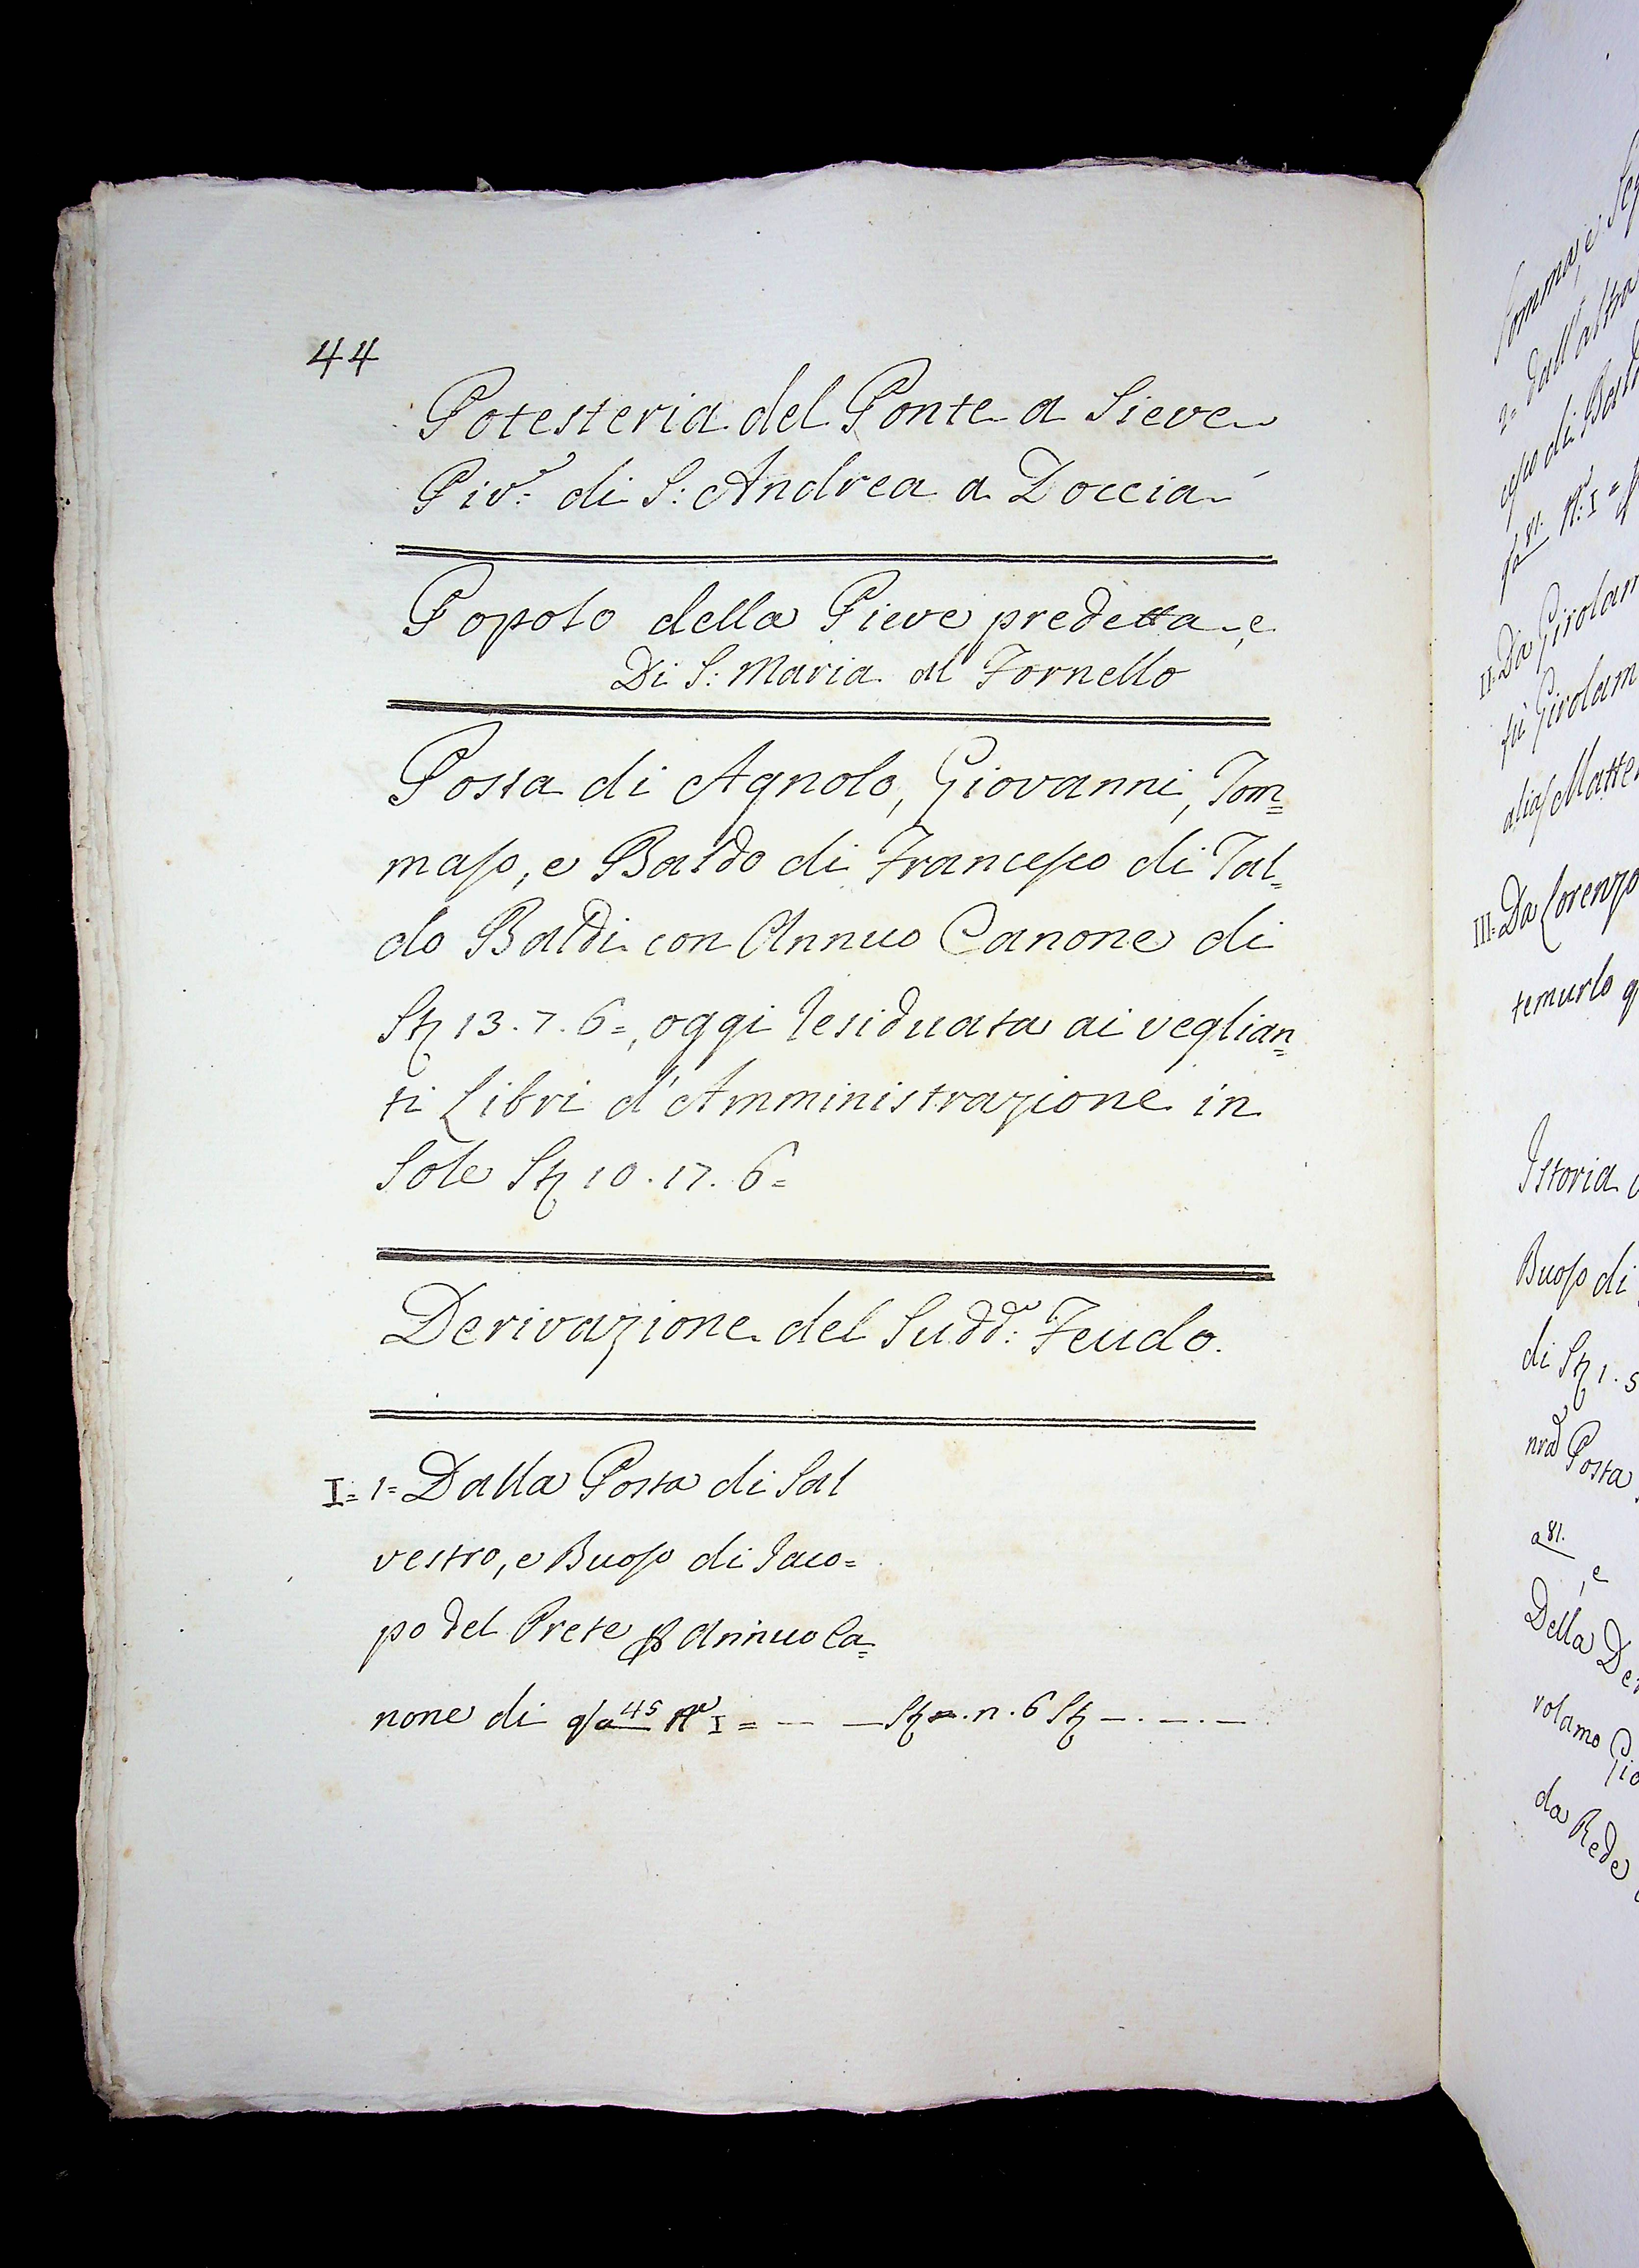 44
Potesteria del Ponte a Sieve
Piv.e di S: Andrea a Doccia
Popolo della Pieve predetta, e
Di S: Maria al Fornello
Posta di Agnolo, Giovanni, Tom=
maso, e Baldo di Francesco di Tal=
do Baldi con Annuo Canone di
St 13.7.6=, oggi residuata ai veglian=
ti Libri d'Amministrazione in
Sole St 10.17.6=
Derivazione del Sudd.o: Feudo.
I= 1= Dalla Posta di Sal
vestro, e Buoso di Iaco=
po del Prete p Annuo Ca=
none di q/a 45 N.o I = — — St —.n.6 St —.—.—
Somma, e
2= dall'altra
di
81. N.o: I =
II= Da Girolam
fù Girolam
alias Matte
III= Da Lorenzo
temurlo
Istoria
Buoso di
di St 1.5
Posta
a 81.
, e
Della De
rolamo Gio
da Rede